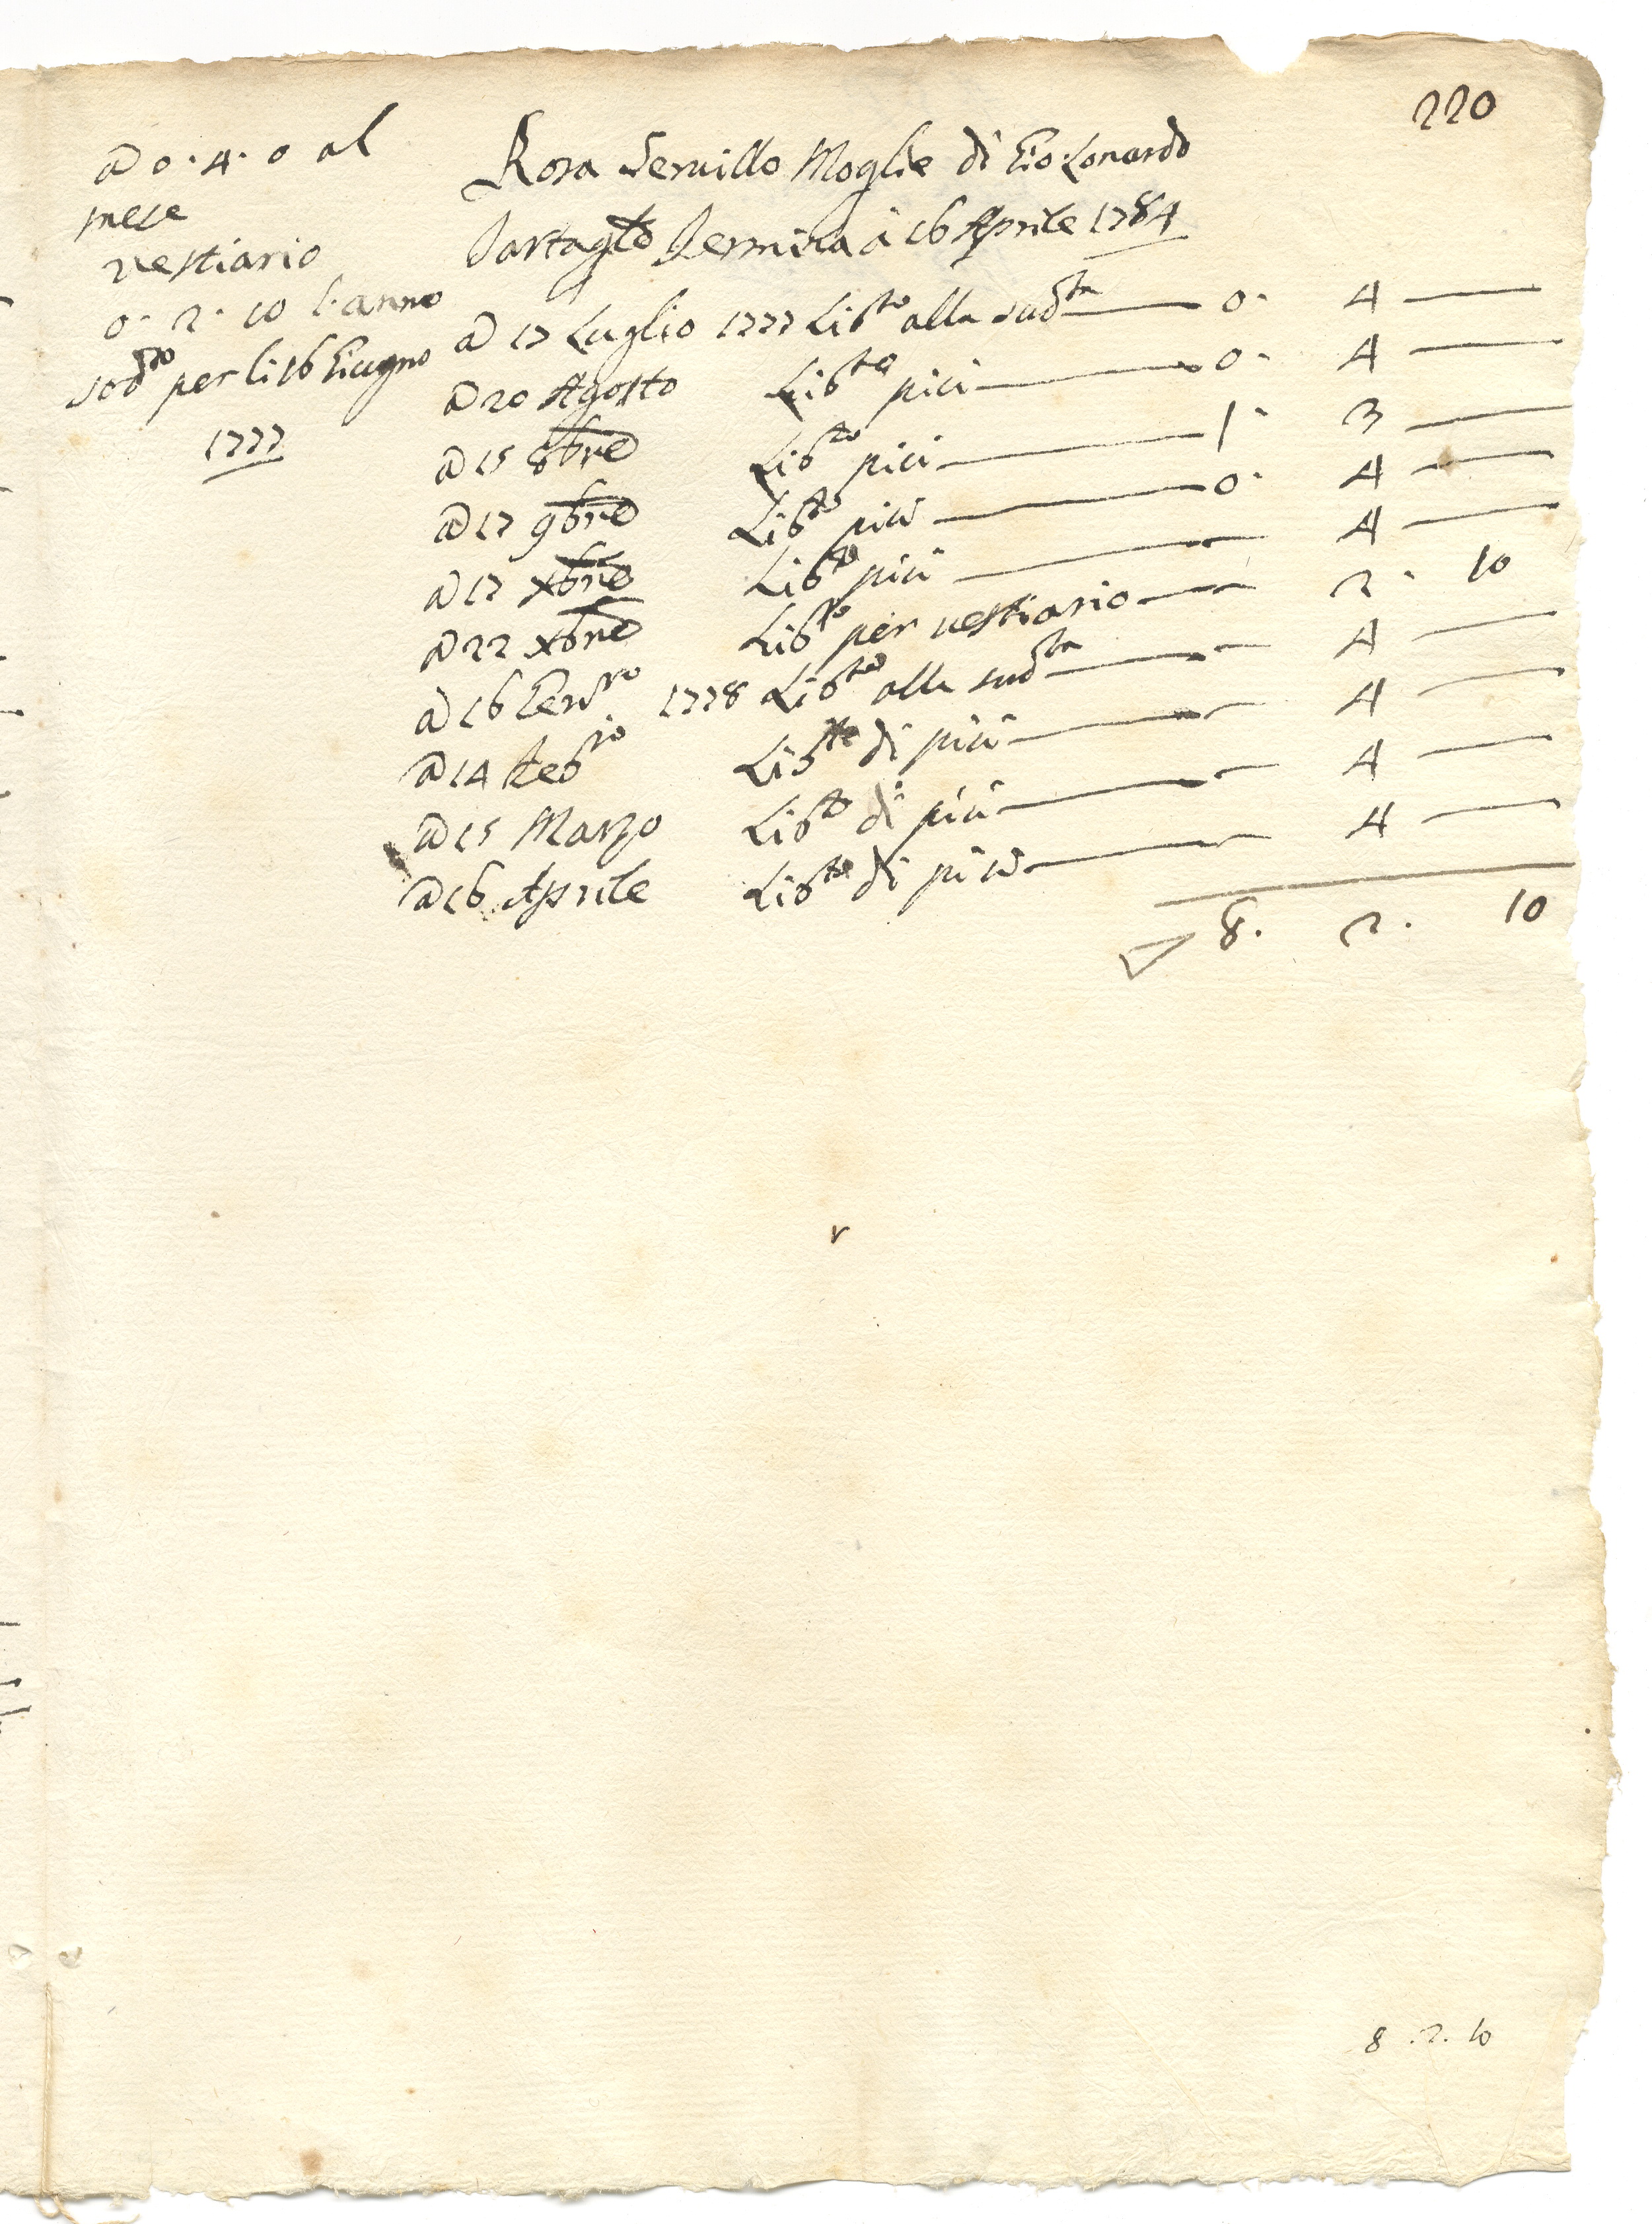 220
a 0. 4. 0 al
mese
vestiario
0. 2. 10 l'anno
sod.to per li 16 Giugno
1777
Rosa Servillo Moglie di Gio: Lonardo
Termina a 16 Aprile 1784
a 17 Luglio 1777 Lib.to alla sud.ta 0. 4
a 20 Agosto Lib.to più 0. 4
a 15 8bre Lib.to più 1. 3
a 17 9bre Lib.to più 0. 4
a 17 Xbre Lib.to più 4
a 22 Xbre Lib.to per vestiario 2. 10
a 16 Gen.ro 1778 Lib.to alla sud.ta 4
a 14 Feb.ro Lib.to di più 4
a 15 Marzo Lib.to di più 4
a 16 Aprile Lib.to di più 4
8. 2. 10
8. 2. 10